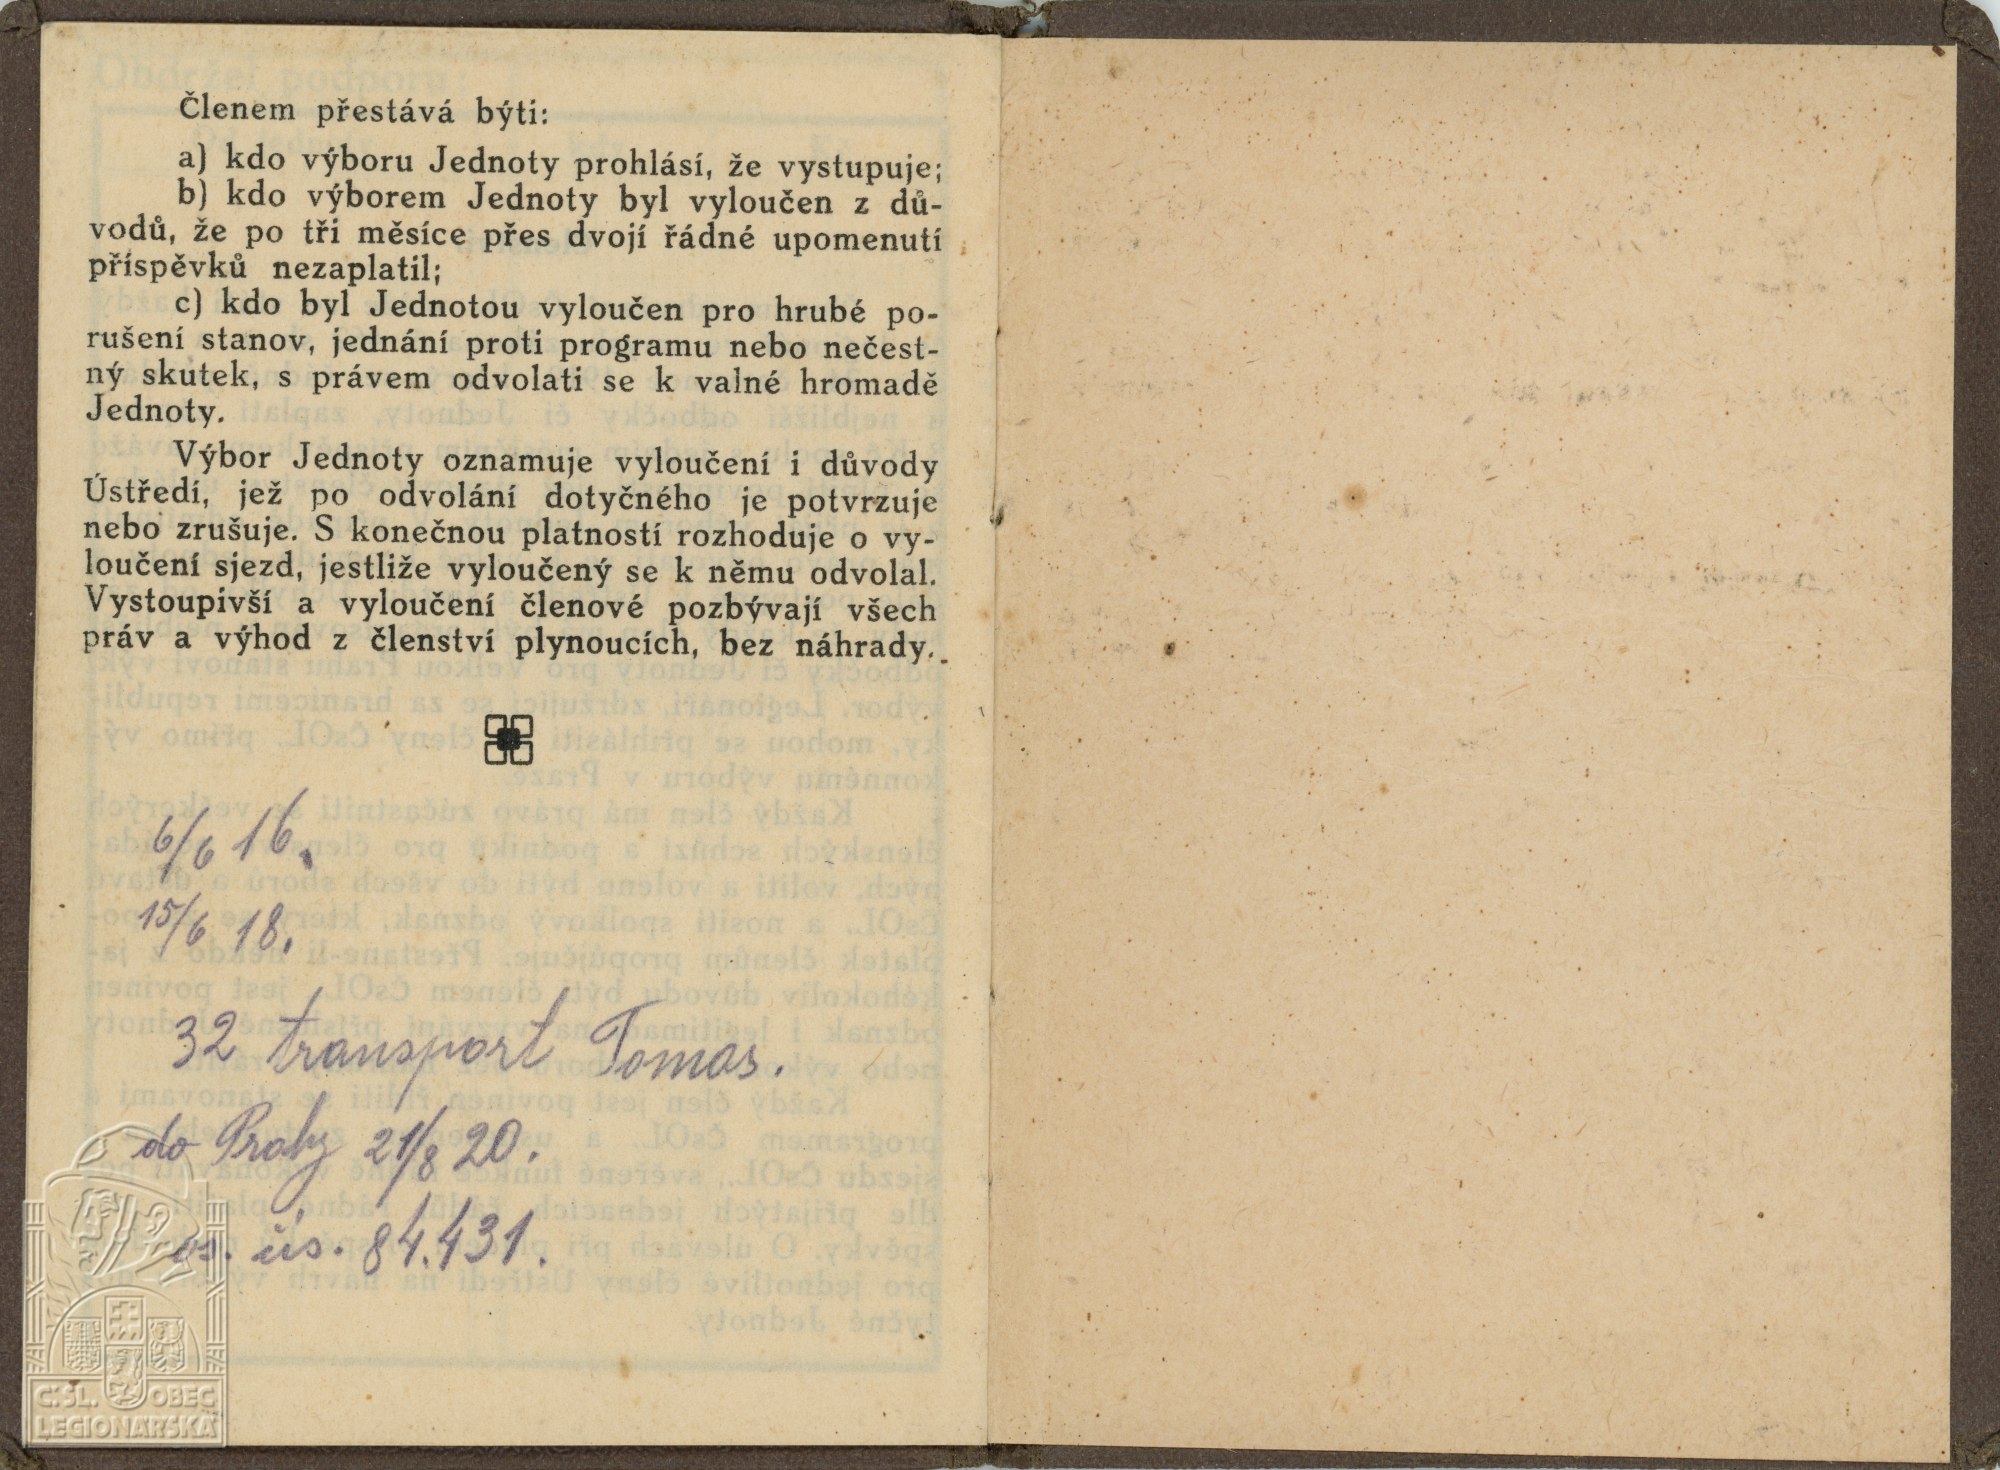 Členem přestává býti:
a) kdo výboru Jednoty prohlásí, že vystupuje;
b) kdo výborem Jednoty byl vyloučen z dů-
vodů, že po tři měsíce přes dvojí řádné upomenutí
příspěvků nezaplatil;
c) kdo byl Jednotou vyloučen pro hrubé po-
rušení stanov, jednání proti programu nebo nečest-
ný skutek, s právem odvolati se k valné hromadě
Jednoty.
Výbor Jednoty oznamuje vyloučení i důvody
Ústředí, jež po odvolání dotyčného je potvrzuje
nebo zrušuje. S konečnou platností rozhoduje o vy-
loučení sjezd, jestliže vyloučený se k němu odvolal.
Vystoupivší a vyloučení členové pozbývají všech
práv a výhod z členství plynoucích, bez náhrady.
6/6 16.
15/6 18.
32 transport Tomas.
do Prahy 21/8 20.
ús. 84.431.
Č.SL. OBEC
LEGIONÁŘSKÁ